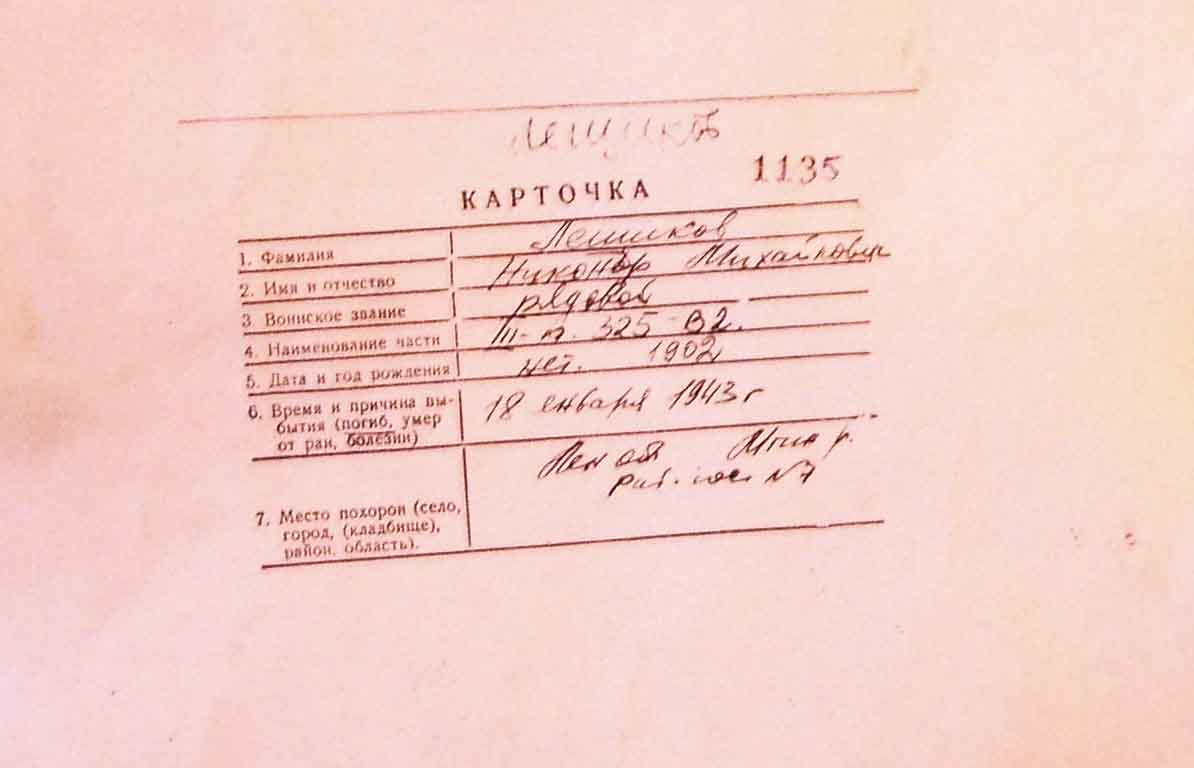 Лешуков
1135
КАРТОЧКА
1. Фамилия Лешиков
2. Имя и отчество Никонор Михайлович
3. Воинское звание рядовой
4. Наименование части 325
5. Дата и год рождения нет. 1902
6. Время и причина вы-
бытия (погиб, умер
от ран, болезни) 18 января 1943 г
Лен об
N7
7. Место похорон (село,
город, (кладбище),
район, область).